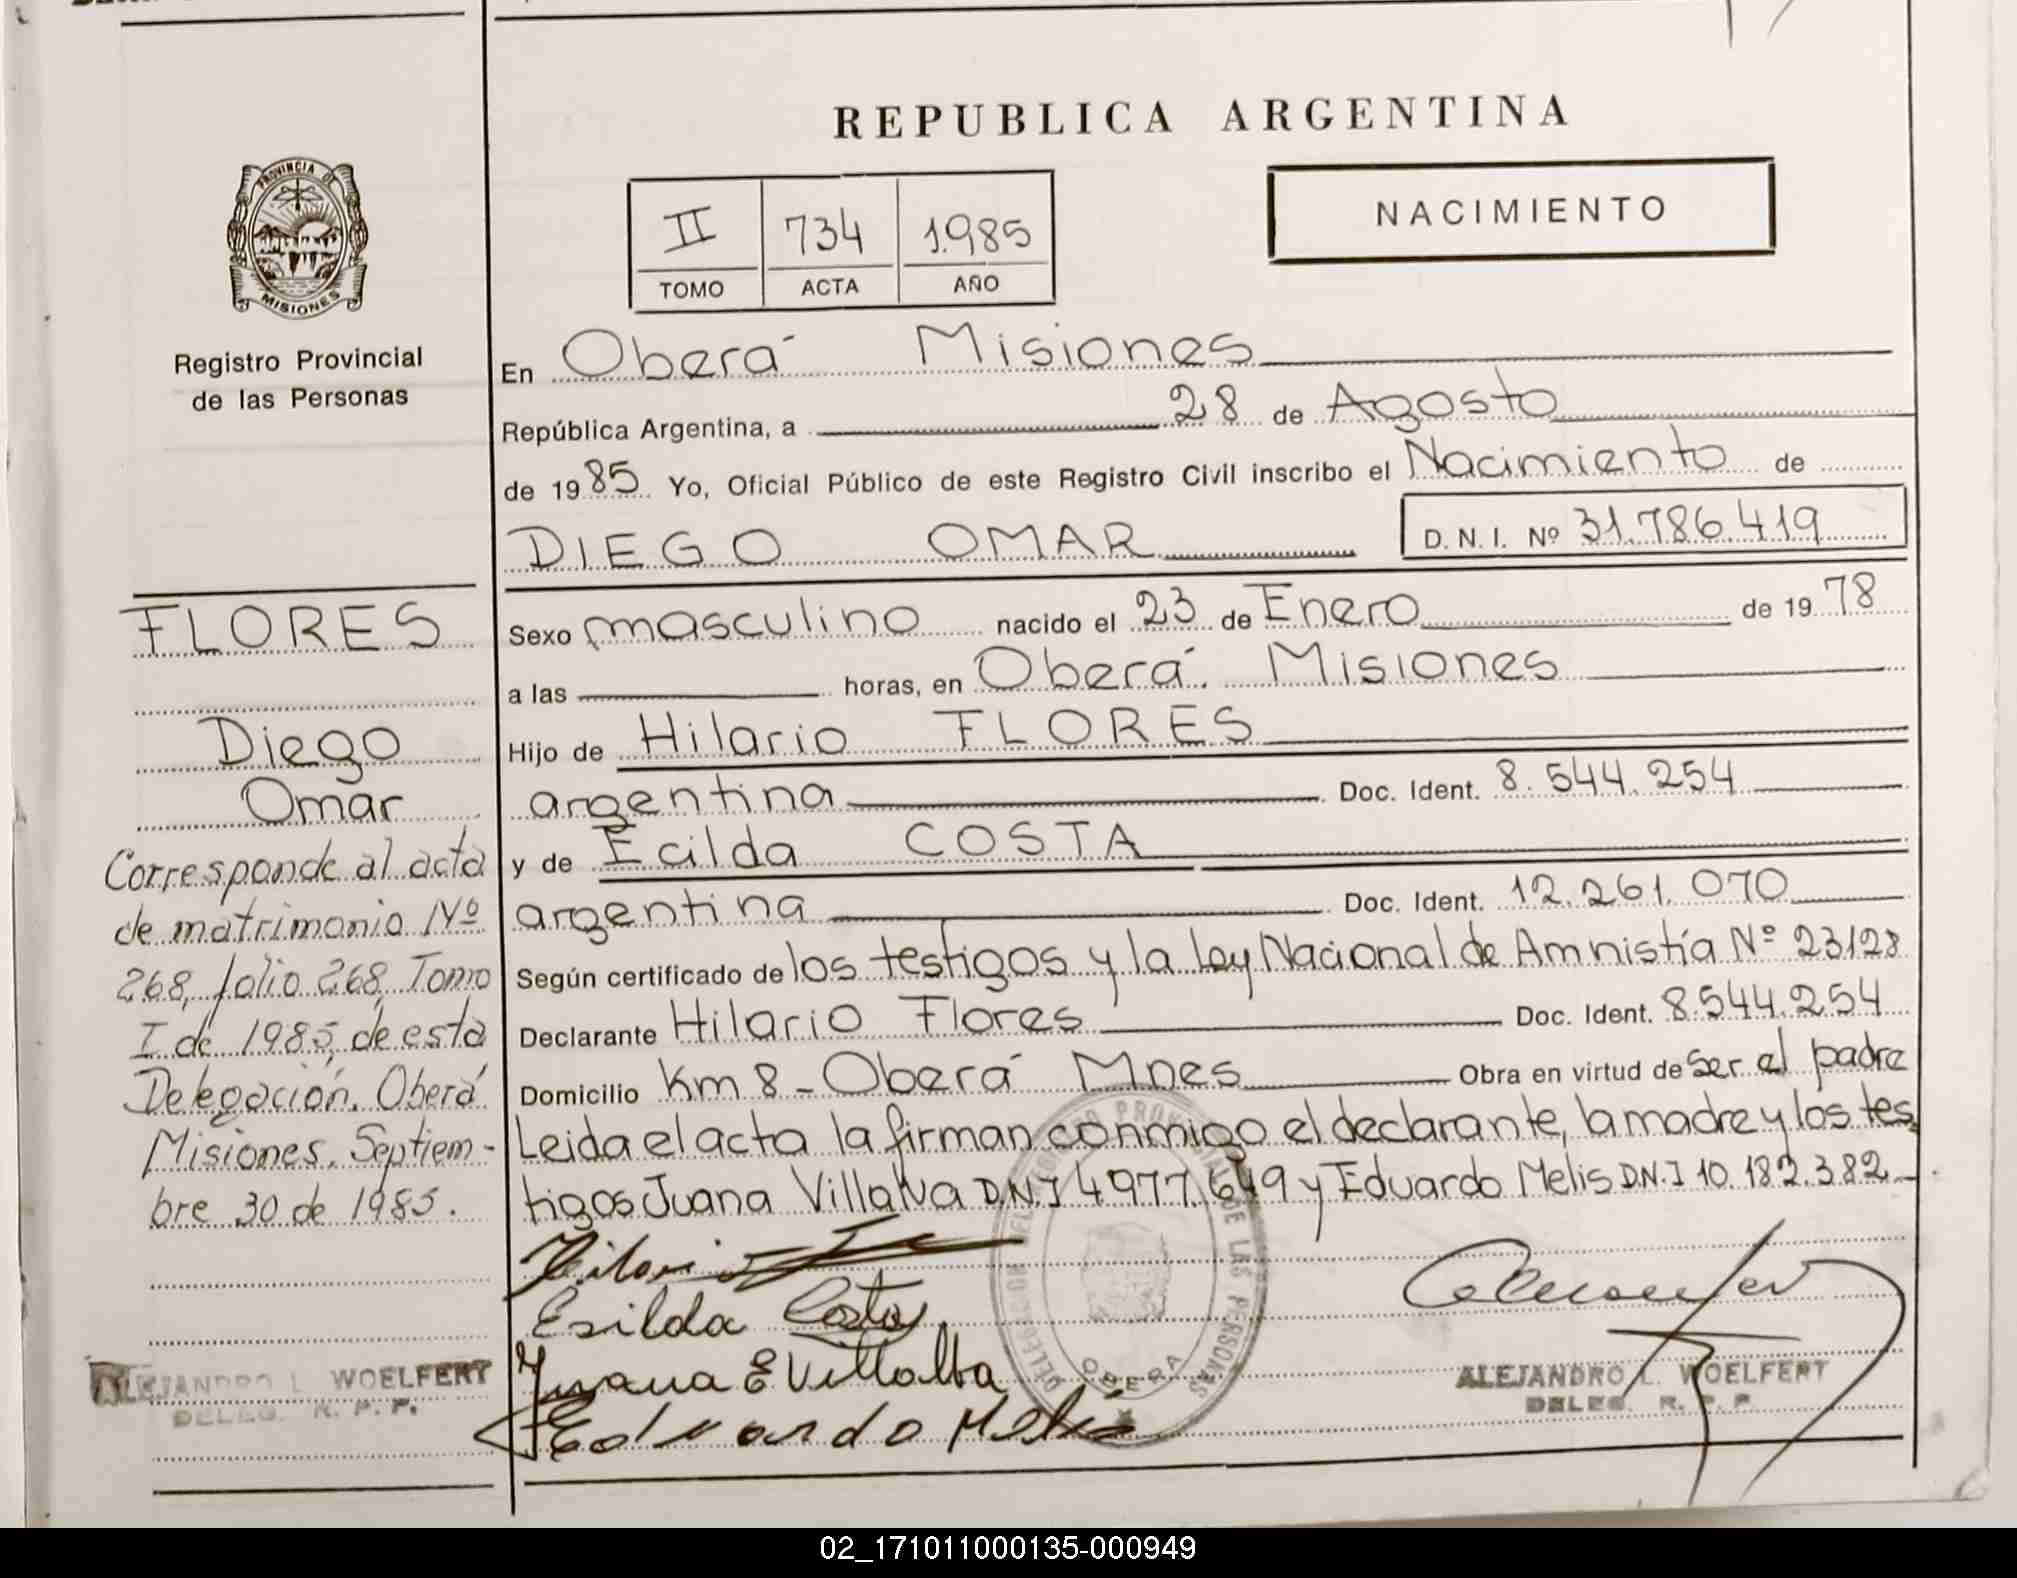 REPUBLICA ARGENTINA
PROVINCIA DE
MISIONES
Registro Provincial
de las Personas
II 734 1985
TOMO ACTA AÑO
NACIMIENTO
En Oberá Misiones
República Argentina, a 28 de Agosto
de 1985 Yo, Oficial Público de este Registro Civil inscribo el Nacimiento de
DIEGO OMAR D.N.I. Nº 31.786.419
FLORES
Diego
Omar
Corresponde al acta
de matrimonio Nº
268, folio 268, Tomo
I de 1985, de esta
Delegación. Oberá
Misiones. Septiem-
bre 30 de 1985.
ALEJANDRO L. WOELFERT
DELEG. R. P. P.
Sexo masculino nacido el 23 de Enero de 1978
a las horas, en Oberá. Misiones
Hijo de Hilario FLORES
argentina Doc. Ident. 8.544.254
y de Ecilda COSTA
argentina Doc. Ident. 12.261.070
Según certificado de los testigos y la Ley Nacional de Amnistía Nº 23128
Declarante Hilario Flores Doc. Ident. 8.544.254
Domicilio Km 8 - Oberá Mnes Obra en virtud de Ser el padre
Leida el acta la firman conmigo el declarante, la madre y los tes
tigos Juana Villalva D.N.I 4977.649 y Eduardo Melis D.N.I 10.182.382
Esilda Costa
Juana E Villalba
Eduardo Melis
DELEGACION DEL REGISTRO PROVINCIAL DE LAS PERSONAS
OBERA
ALEJANDRO L. WOELFERT
DELEG. R. P. P.
02_171011000135-000949